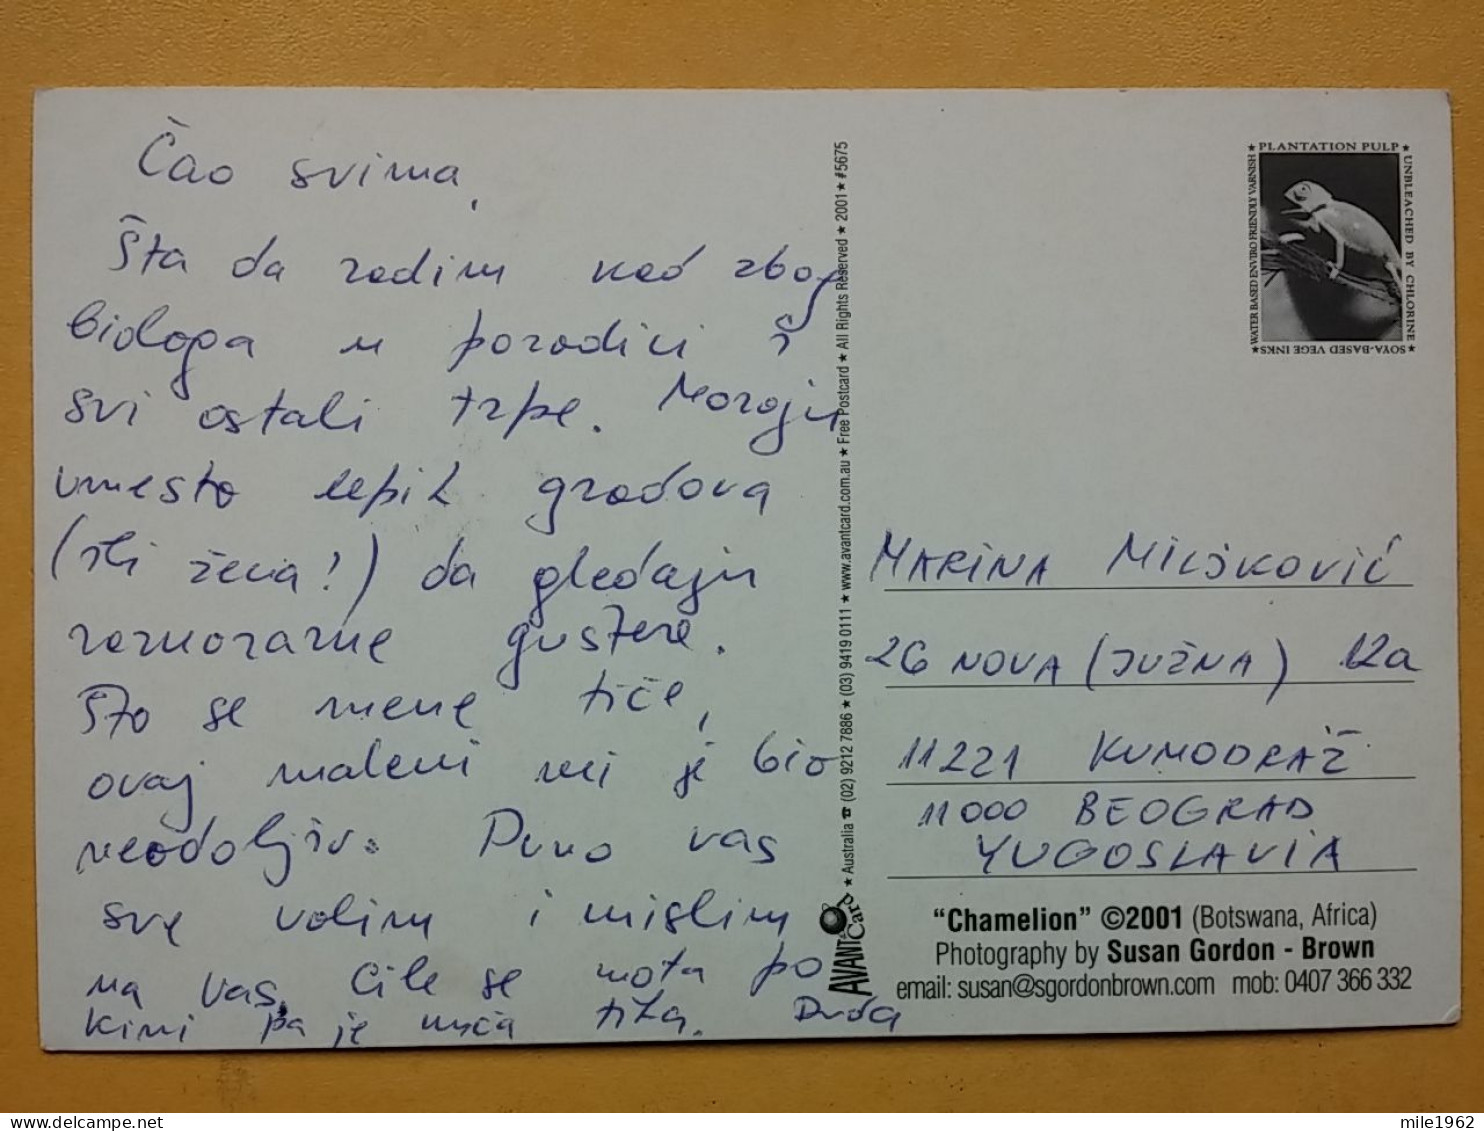 Čao svima,
Šta da radim kad zbog
biologa u porodici i
svi ostali trpe. Moraju
umesto lepih gradova
(ili žena!) da gledaju
raznorazne guštere.
Što se mene tiče,
ovaj maleni mi je bio
neodoljiv. Puno vas
sve volim i mislim
na vas. Cile se mota po
kini pa je kuća tiha. Duda
MARINA MILJKOVIĆ
26 NOVA (JUŽNA) 12a
11221 KUMODRAŽ
11000 BEOGRAD
YUGOSLAVIA
"Chamelion" ©2001 (Botswana, Africa)
Photography by Susan Gordon - Brown
email: susan@sgordonbrown.com mob: 0407 366 332
AVANT Card ★ Australia ☎ (02) 9212 7886 ★ (03) 9419 0111 ★ www.avantcard.com.au ★ Free Postcard ★ All Rights Reserved ★ 2001 ★ #5675
★ PLANTATION PULP ★
UNBLEACHED BY CHLORINE
★ SOYA-BASED VEGE INKS ★
WATER BASED ENVIRO FRIENDLY VARNISH
mile1962